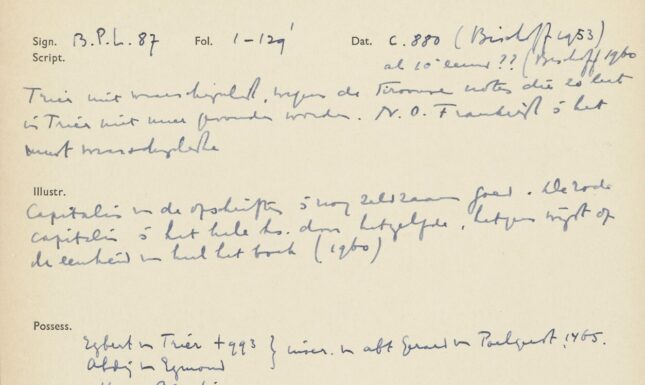 Sign. B.P.L. 87 Fol. 1-129' Dat. c. 880 (Bischoff 1953)
Script. al 10e eeuw?? (Bischoff 1960
Trier niet waarschijnlijk, wegens de Tironse notes die zo laat
in Trier niet meer gevonden worden. N.O. Frankrijk is het
meest waarschijnlijke
Illustr.
Capitalis in de opschriften is nog zeldzaam goed. De rode
capitalis is het hele hs. door hetzelfde, hetgeen wijst op
de eenheid van heel het boek (1960)
Possess.
Egbert v Trier +993 } inscr. v abt Gerard v Poelgeest, 1465.
Abdij v Egmond